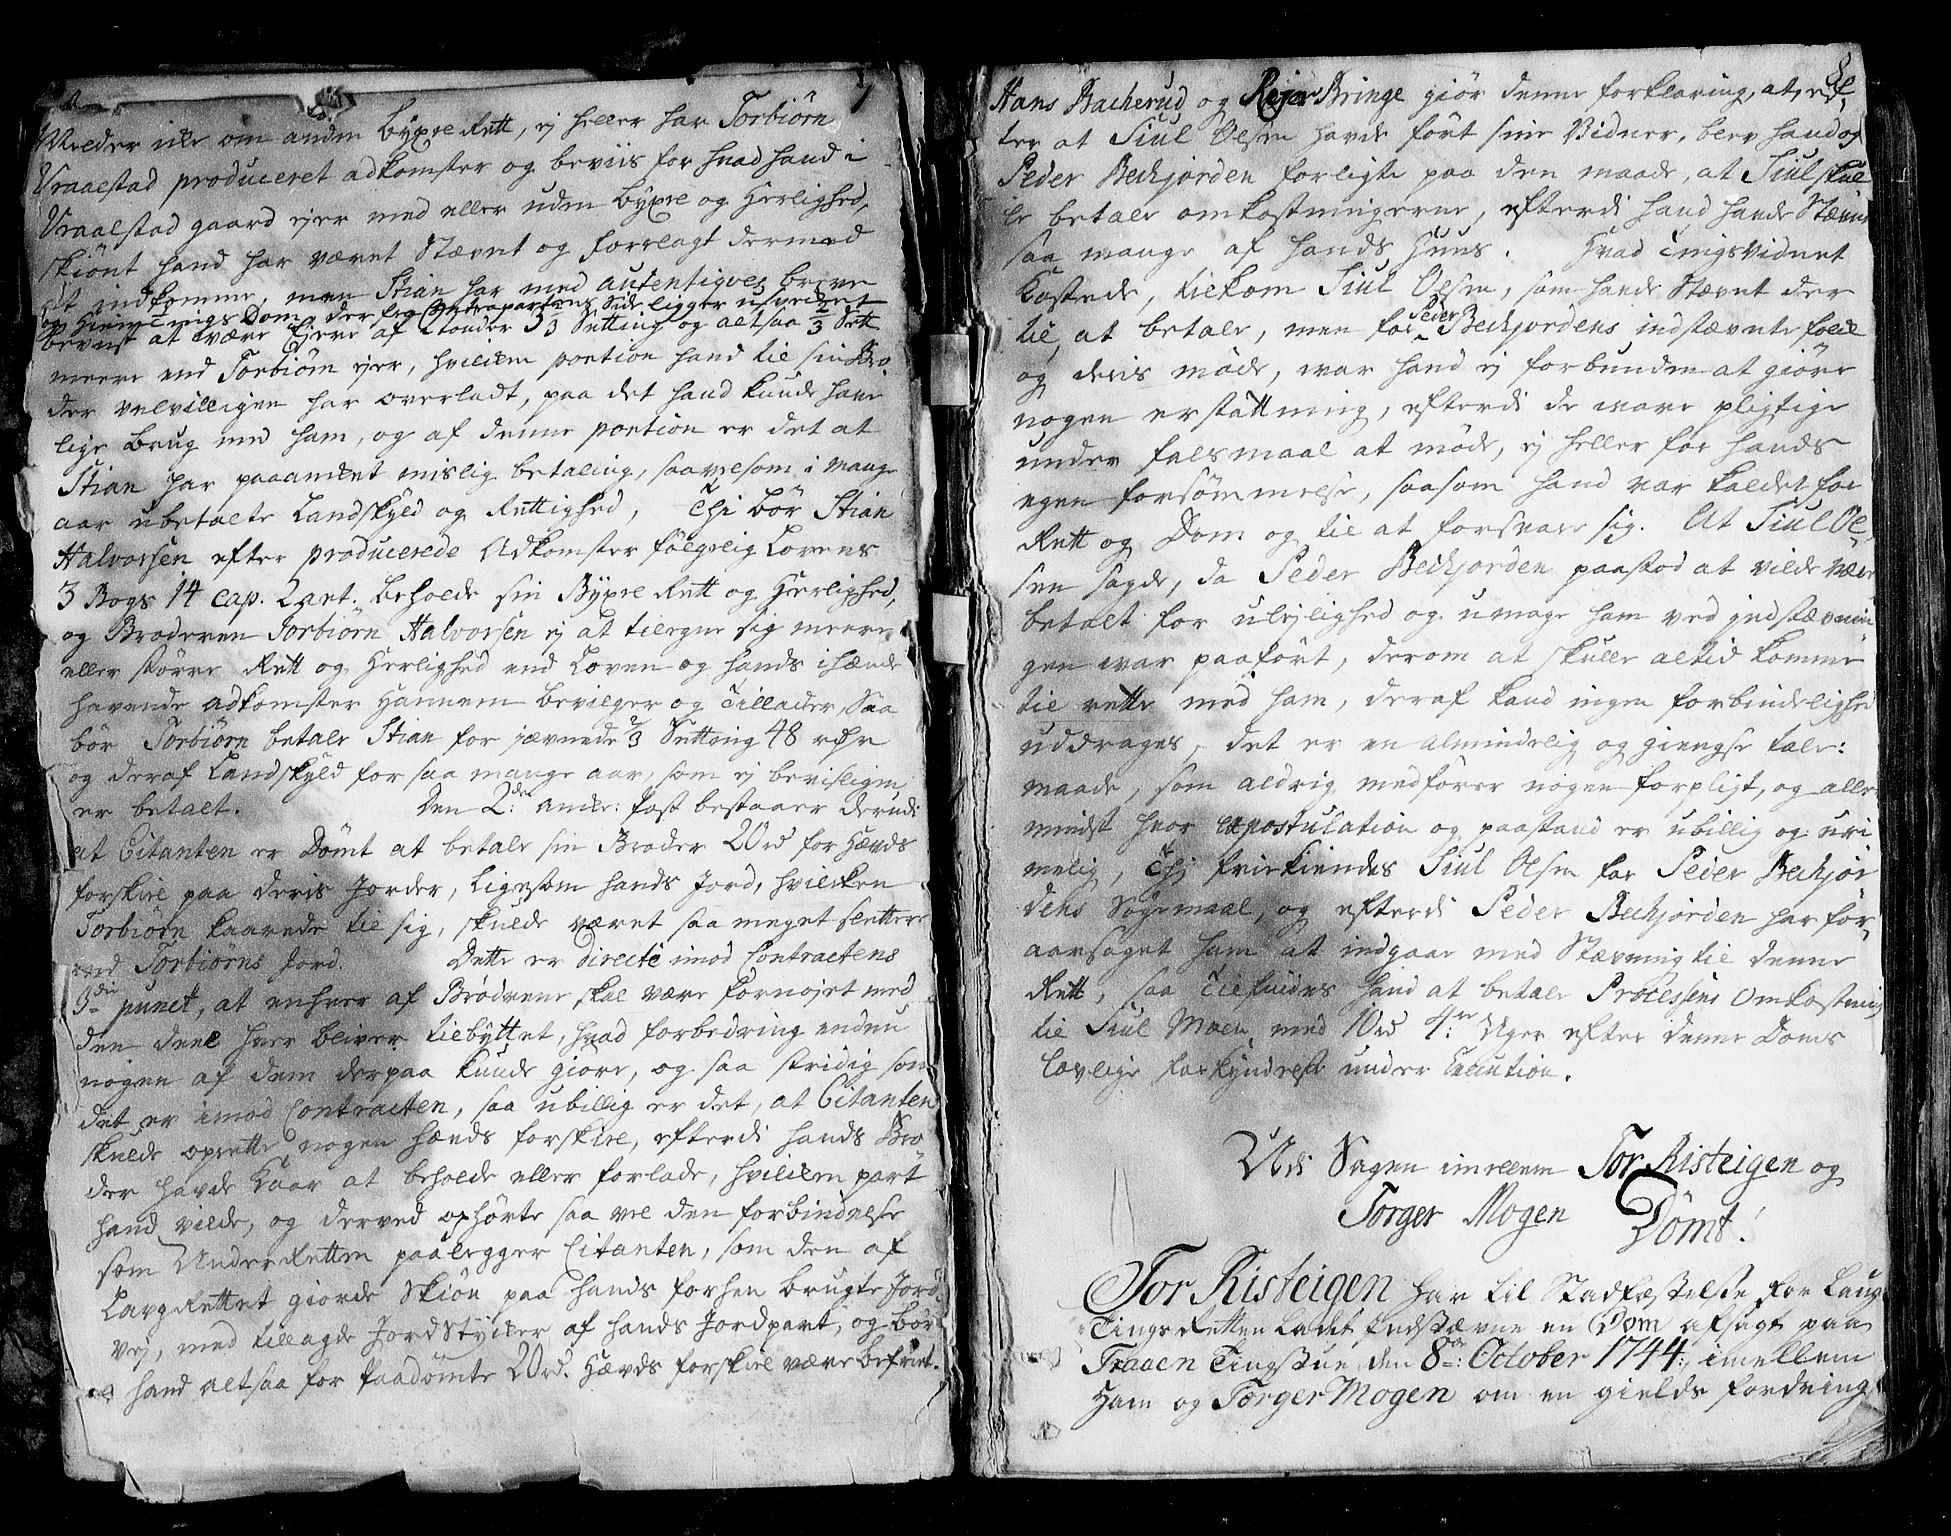 7
Melder ikke om anden byxle Rett, ej heller har Torbiörn
Vraalstad produceret adkomster og beviis for hvad hand i
Vraalstad gaard ejer med eller uden byxle og Herlighed,
skiönt hand har været Stævnt og forelagt dermed
at indkomme, men Stian har med autentiqves breve
og Hiem Tings Dom, der fra Contrapartens side ligger usvecket
beviist at være Eiere af Tønder 3 1/3 Setting og altsaa 2/3 Sett
meere end Torbiörn ejer, hvilken portion hand til sin Bro,
der velvilligen har overladt, paa det hand kunde have
lige brug med ham, og af denne portion er det at
Stian har paaanket mislig betaling, saavelsom i mange
aar ubetalte Landskyld og Rettighed, Thi bör Stian
Halvorsen efter producerede Adkomster fölgelig Lovens
3 Bogs 14 cap. 2 art. beholde sin Byxle Rett og Herlighed,
og Broderen Torbiörn Halvorsen ej at tilegne sig meere
eller större Rett og Herlighed end Loven og hands ihænde
havende adkomster Hannem bevilger og Tillader, Saa
bör Torbiörn betale Stian for jævnede 2/3 Setting 48 rdr
og deraf Landskyld for saa mange aar, som ej bevisligen
er betalt. Den 2den anke: Post bestaaer derudi
at Citanten er Dömt at betale sin Broder 20rd for Hævds
forskiel paa deris Jorder, Ligesom hands Jord, hvilcken
Torbiörn kaarede til sig, skulde været saa meget slettere
end Torbiörns Jord. Dette er directe imod Contractens
3die punct, at enhver af Brödrene skal være fornöjet med
den deel hver bliver tilbyttet, hvad forbedring enden
nogen af dem derpaa kunde giöre, og saa stridig som
det er imod Contracten, saa ubillig er det, at Citanten
skulde oprette nogen hævds forskiel, efterdi hands Bro
der havde Kaar at beholde eller forlade, hvilcken part
hand vilde, og derved ophörte saa vel den forbindelse
som Under Retten paalegger Citanten, som den af
LavgRettet giorde Skiön paa hands forhen brugte Jord
vej, med tillagde Jordstycker af hands Jordpart, og bör
hand altsaa for Paadömte 20rd. Hævds forskiel være befriet.
8
Hans Bacherud og Rejer Bringe giör denne forklaring, at, ef,
ter at Siul Olsen havde fört sine Vidner, blev hand og
Peder Beckjorden forligte paa den maade, at Siul skul
le betale omkostningerne, efterdi hand havde Stævnt
saa mange af hands Huus. Hvad Tingsvidnet
Kostede, tilkom Siul Olsen, som hafde Stævnt der
til, at betale, men for Peder Beckjordens indstævnte folk
og deris möde, war hand ej forbunden at giöre
nogen erstattning, efterdi de vare pligtige
under falsmaal at möde, ej heller for hands
egen forsömmelse, saasom hand var kaldet for
Rett og Dom og til at forsvare sig. At Siul Ol,
sen sagde, da Peder Beckjorden paastod at vilde være
betalt for ulejlighed og umage ham ved jndstævnin
gen var paafört, derom at skulle altid komme
til rette med ham, deraf kand ingen forbindelighed
uddrages, det er en almindelig og giengse tale:
maade, som aldrig medförer nogen forpligt, og aller
mindst hvor expostulation og paastand er ubillig og uri
melig, Thi frikiendes Siul Olsen for Peder Beckjor
dens Sögemaal, og efterdi Peder Beckjorden har for,
aarsaget ham at indgaae med Stævning til denne
Rett, saa Tilfindes hand at betale Processens Omkostning
til Siul Moen med 10rd 4re Uger efter denne Doms
lovlige forkyndelse under Execution.
Udi Sagen imellem Tor Risteigen og
Torger Mogen Dömt!
Tor Risteigen har til Stadfæstelse for Laug
TingsRetten Ladet Indstævne en Dom afsagt paa
Traaen Tingstue den 8de: October 1744, imellem
Ham og Torger Mogen om en gields fordring